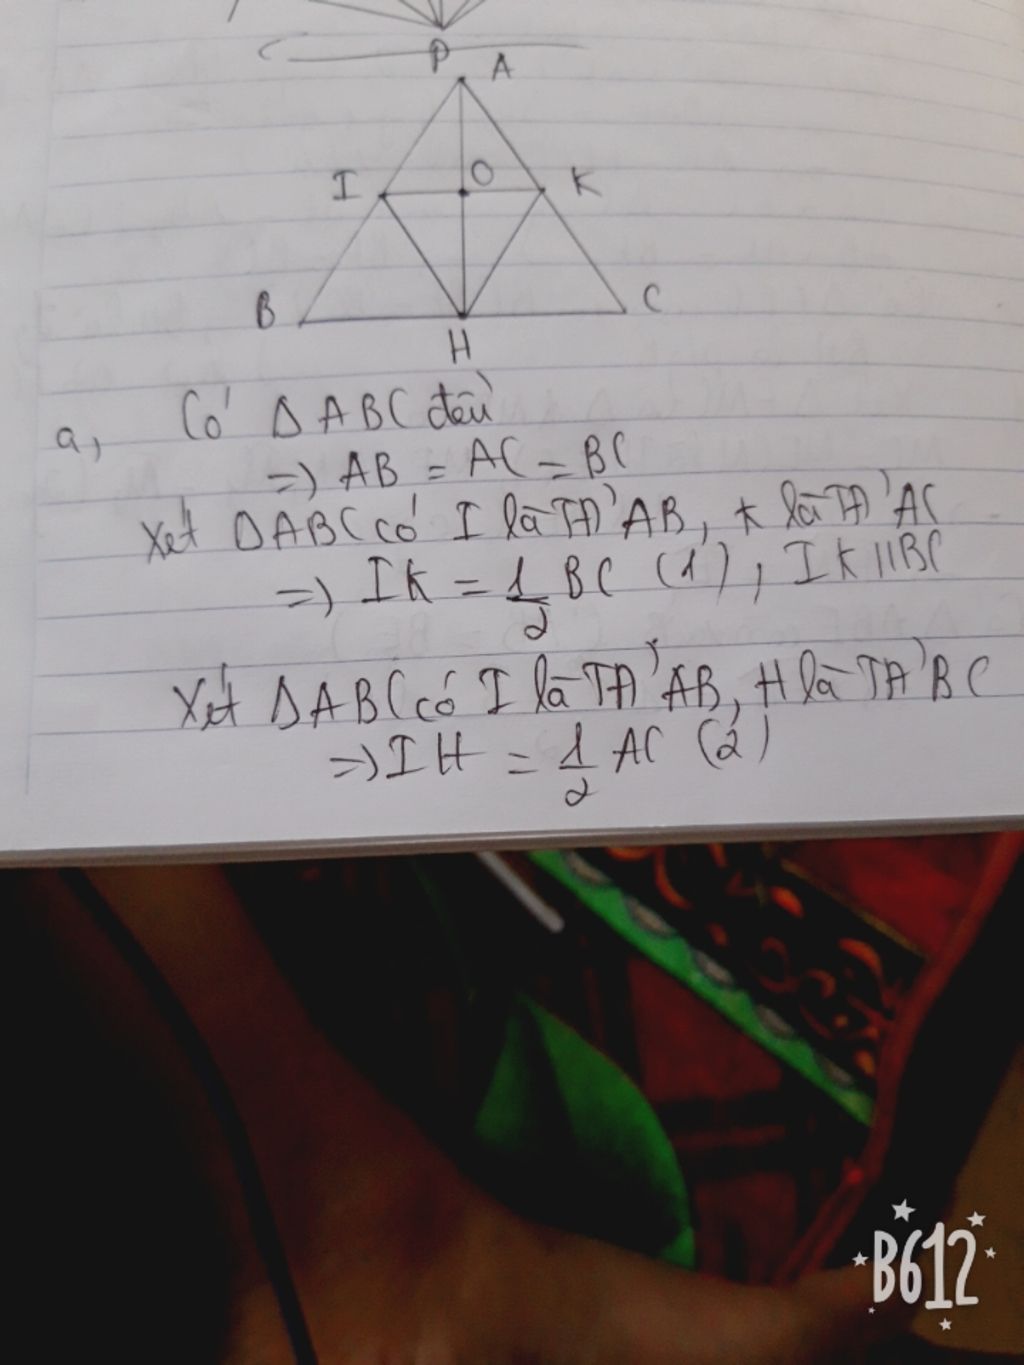 P
A
I
O
K
B
C
H
a, Có Δ ABC đều
=> AB = AC = BC
Xét ΔABC có I là TĐ AB, K là TĐ AC
=> IK = 1/2 BC (1), IK // BC
Xét ΔABC có I là TĐ AB, H là TĐ BC
=> IH = 1/2 AC (2)
B612